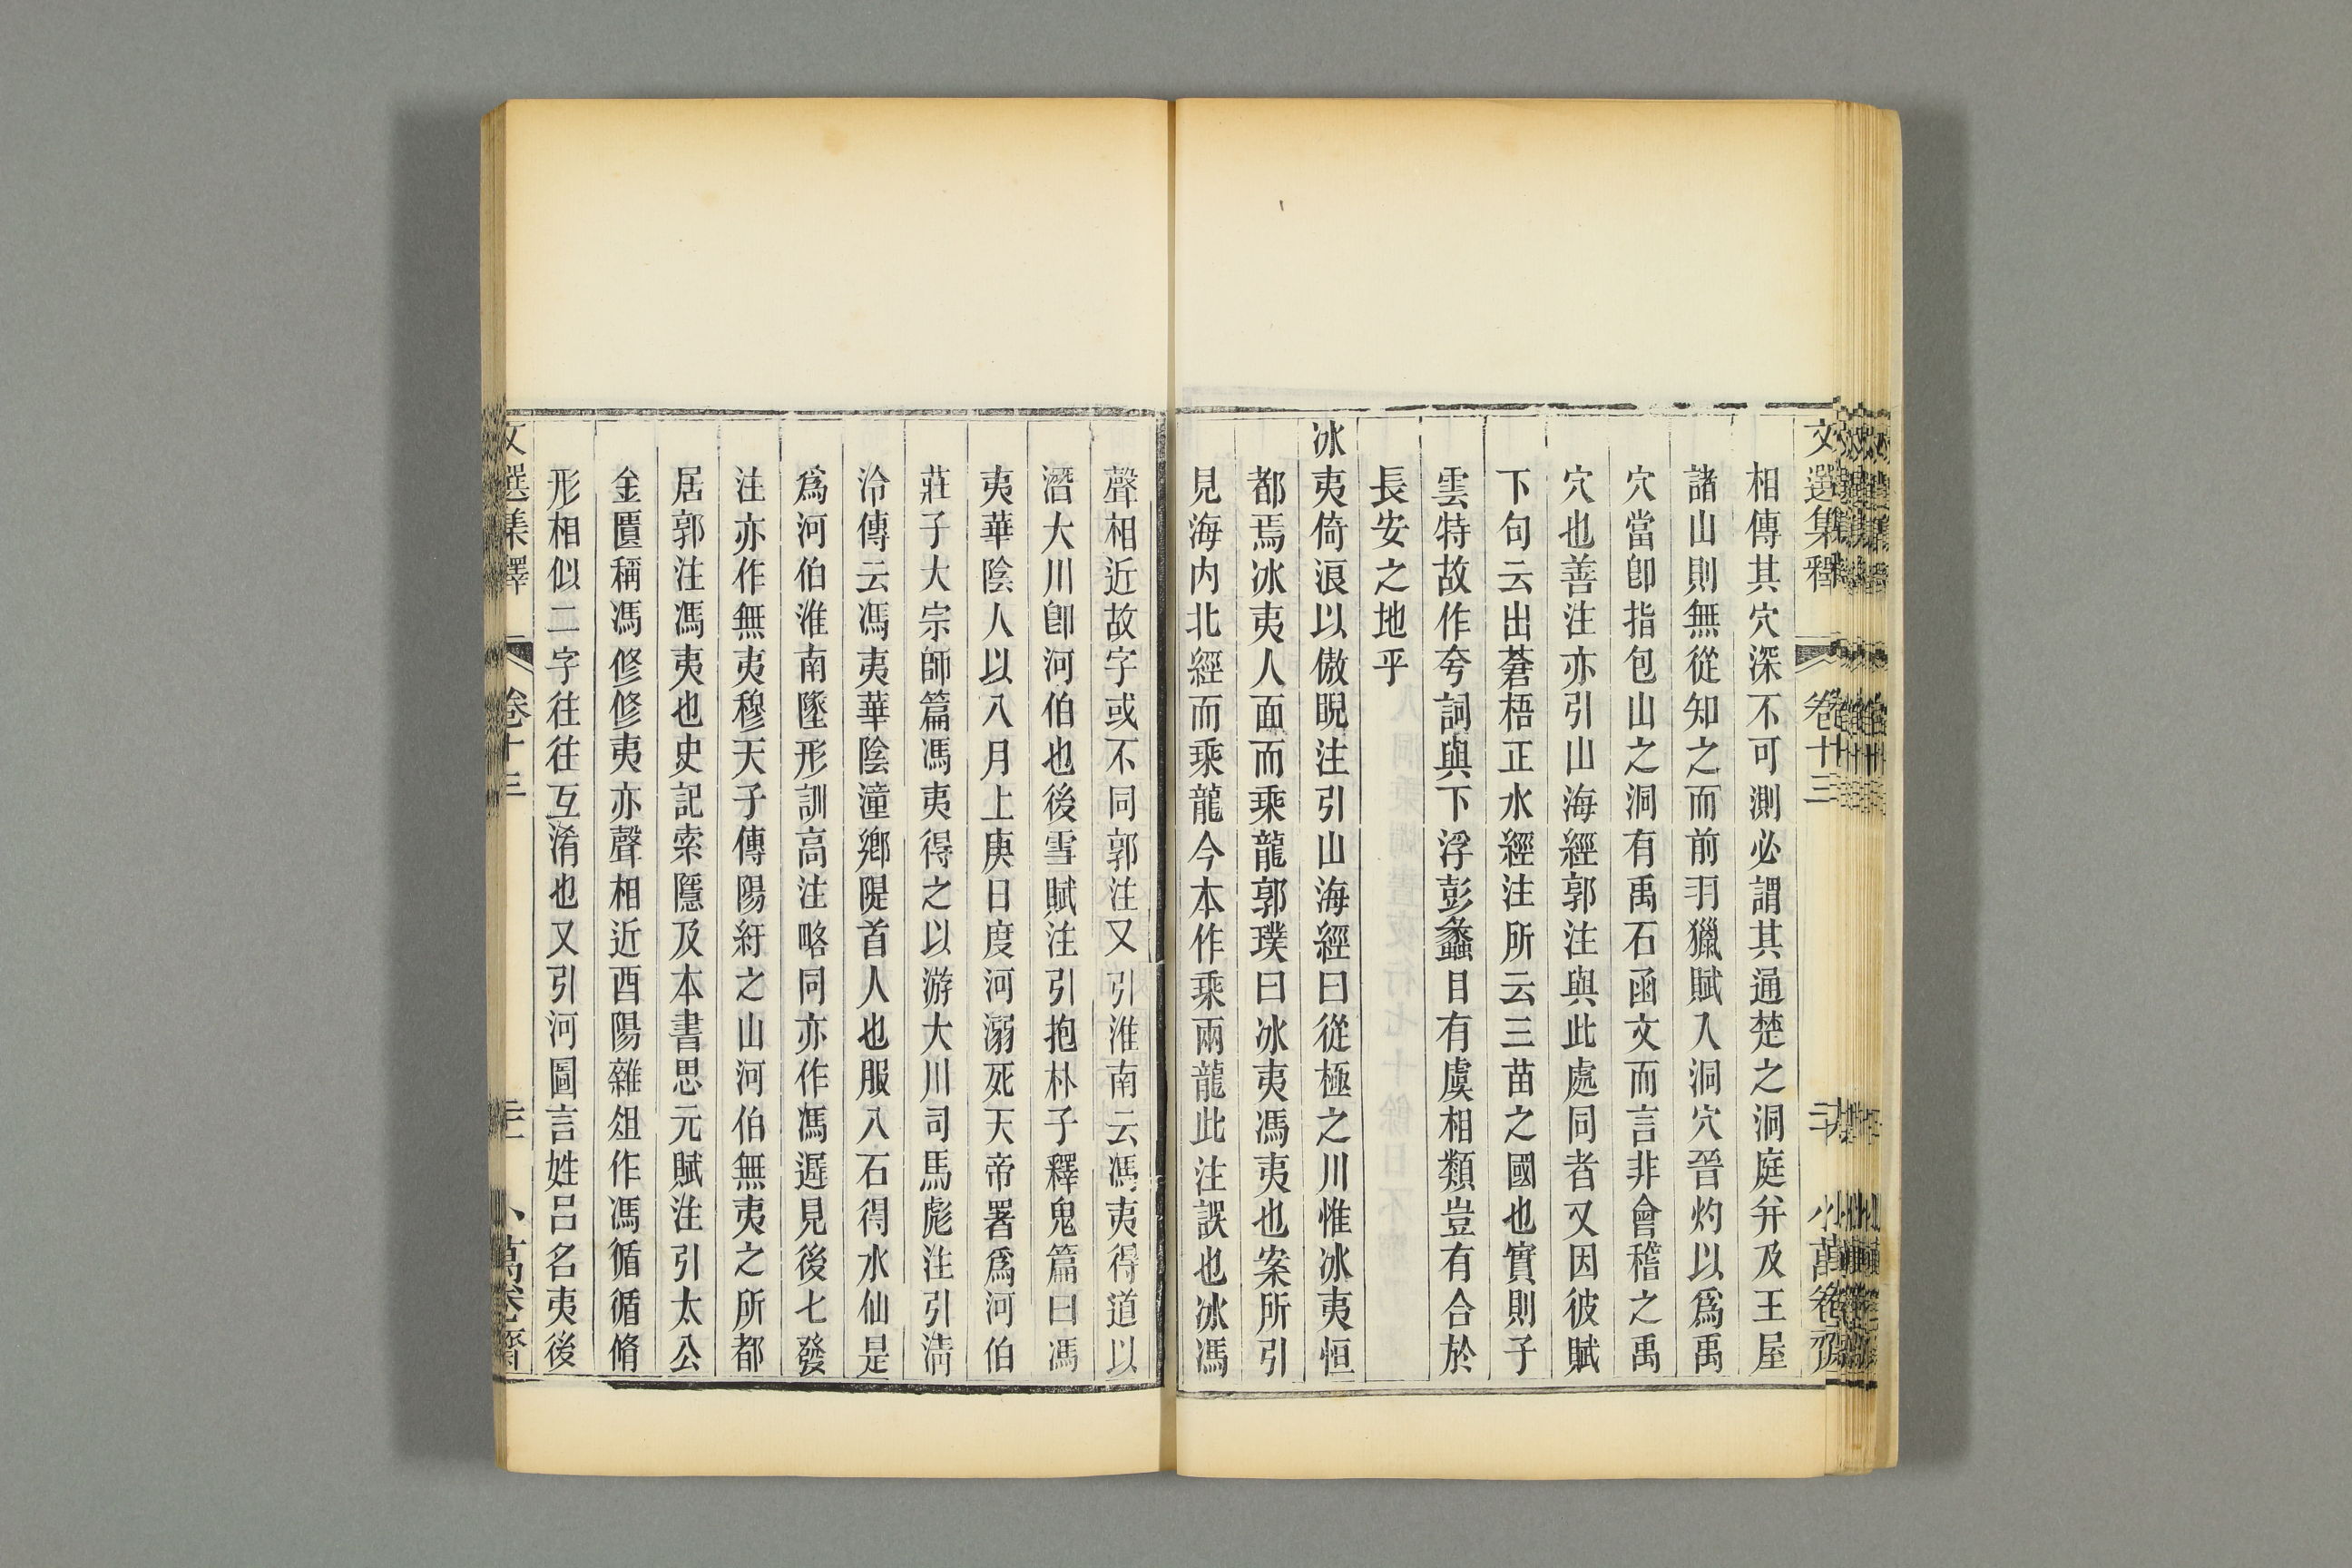 文選集釋 卷十三 小萬卷齋
相傳其穴深不可測必謂其通楚之洞庭并及王屋
諸山則無從知之而前羽獵賦入洞穴晉灼以爲禹
穴當卽指包山之洞有禹石函文而言非會稽之禹
穴也善注亦引山海經郭注與此處同者又因彼賦
下句云出蒼梧正水經注所云三苗之國也實則子
雲特故作夸詞與下浮彭蠡目有虞相類豈有合於
長安之地乎
冰夷倚浪以傲睨注引山海經曰從極之川惟冰夷恒
都焉冰夷人面而乘龍郭璞曰冰夷馮夷也案所引
見海內北經而乘龍今本作乘兩龍此注誤也冰馮
聲相近故字或不同郭注又引淮南云馮夷得道以
潛大川卽河伯也後雪賦注引抱朴子釋鬼篇曰馮
夷華陰人以八月上庚日度河溺死天帝署爲河伯
莊子大宗師篇馮夷得之以游大川司馬彪注引淸
泠傳云馮夷華陰潼鄉隄首人也服八石得水仙是
爲河伯淮南墬形訓高注略同亦作馮遲見後七發
注亦作無夷穆天子傳陽紆之山河伯無夷之所都
居郭注馮夷也史記索隱及本書思元賦注引太公
金匱稱馮修修夷亦聲相近酉陽雜俎作馮循循脩
形相似二字往往互淆也又引河圖言姓呂名夷後
文選集釋 卷十三 小萬卷齋